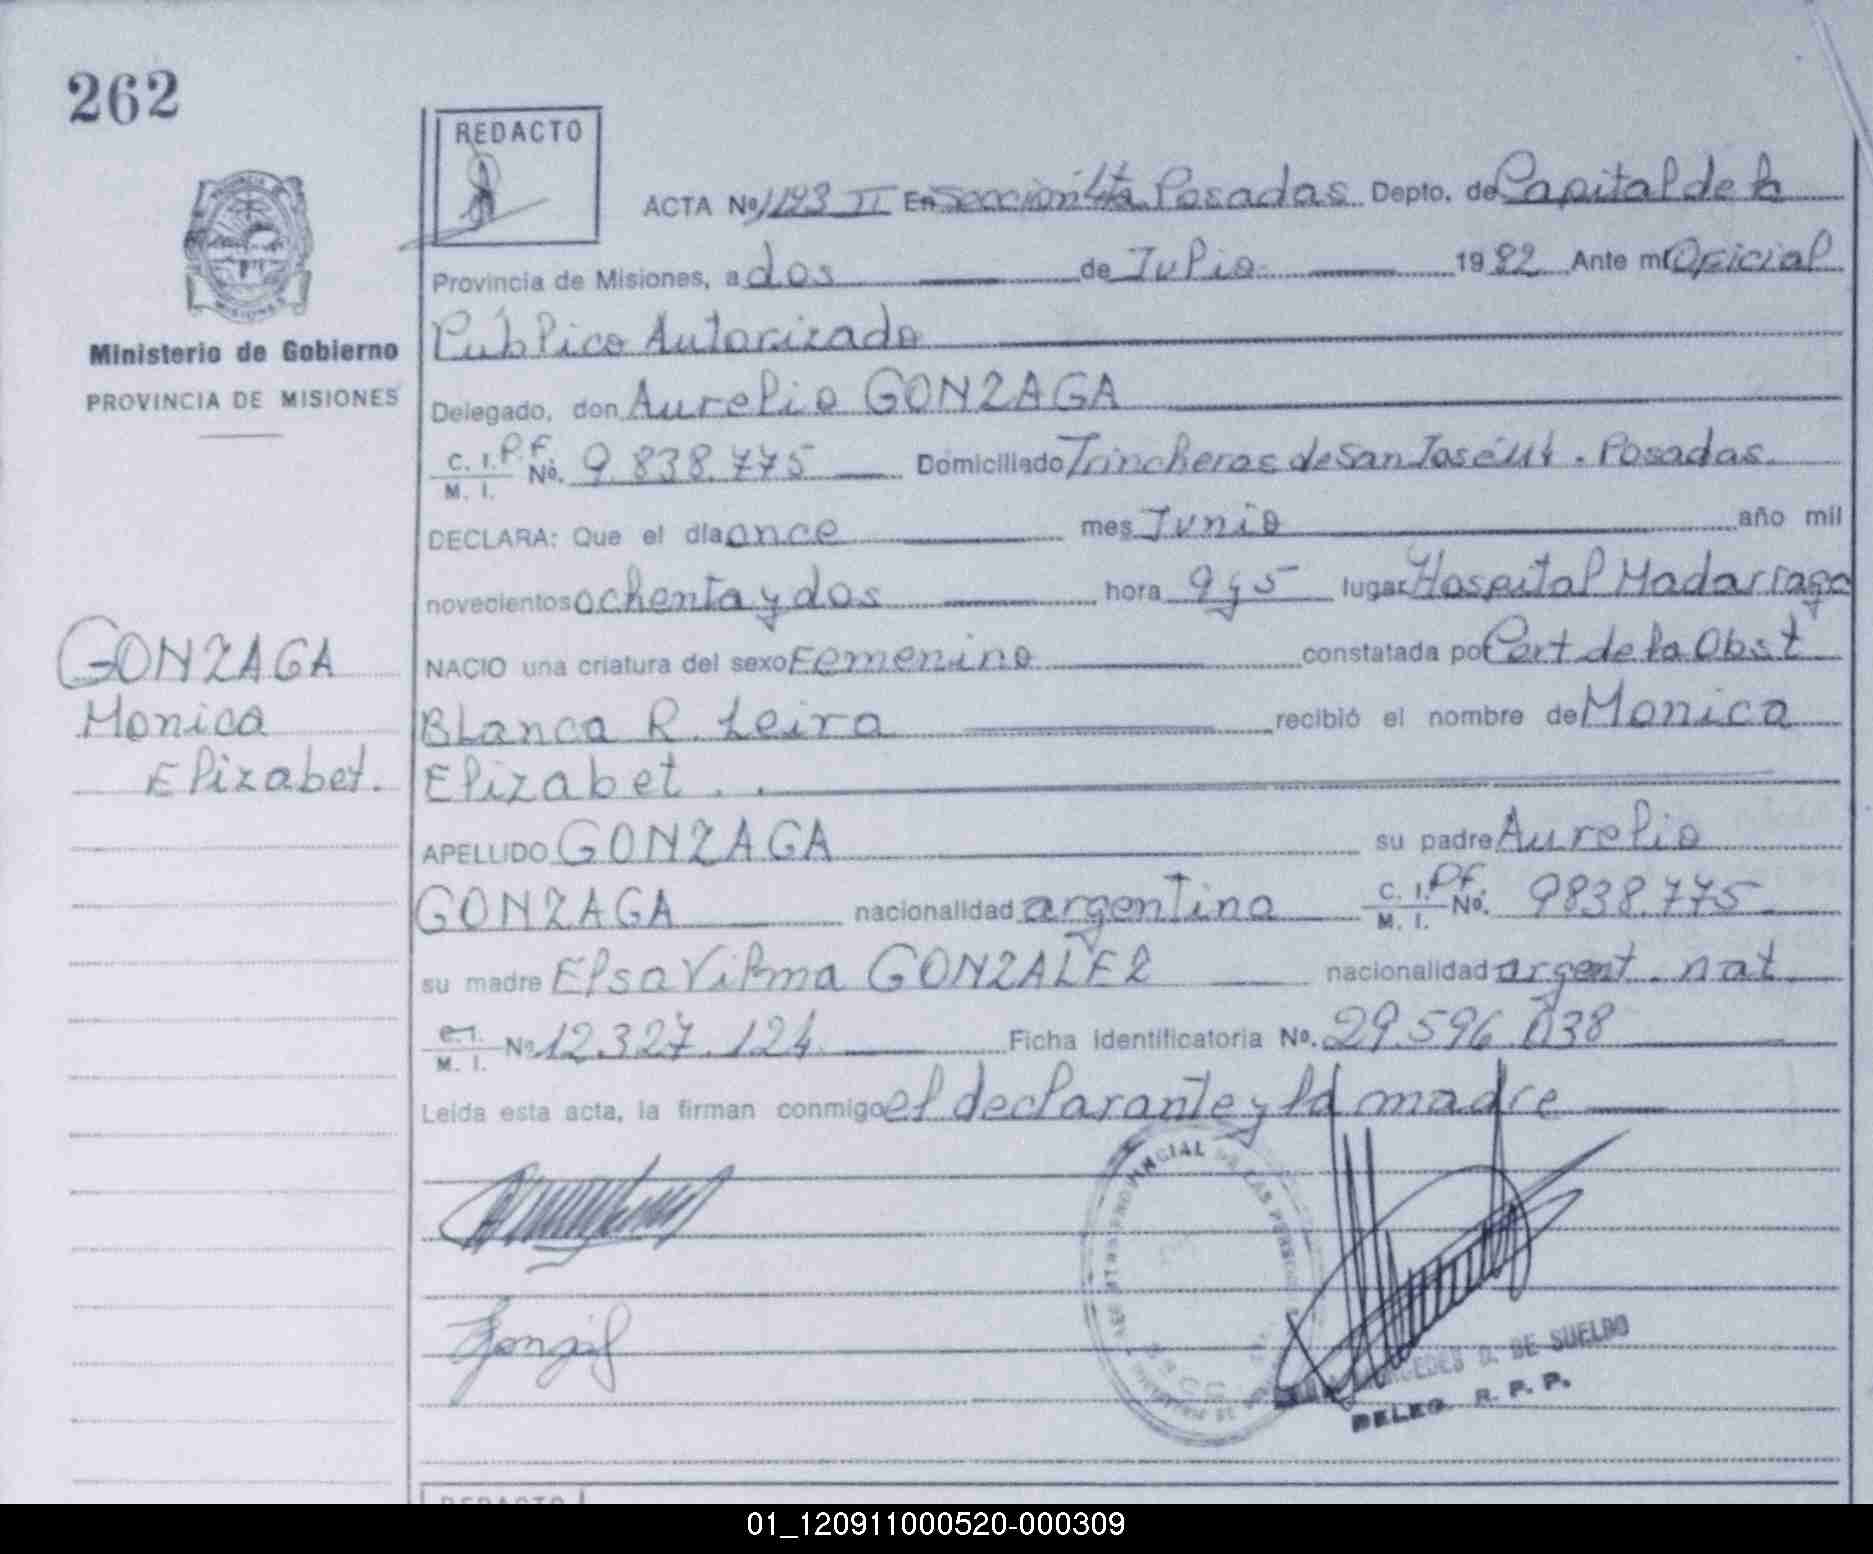 262
REDACTO
ACTA No 1193 II En Sección 4ta Posadas Depto. de Capital de la
Provincia de Misiones, a dos de Julio 1982 Ante mi Oficial
Público Autorizado
Ministerio de Gobierno
PROVINCIA DE MISIONES
Delegado, don Aurelio GONZAGA
C. I. P.F. No. 9.838.775 Domiciliado Trincheras de San José Posadas
M. I.
DECLARA: Que el día once mes Junio año mil
novecientos ochenta y dos hora 9 y 5 lugar Hospital Madarriaga
NACIO una criatura del sexo Femenino constatada por Cert de la Obst
Blanca R. Leira recibió el nombre de Monica
Elizabet . .
GONZAGA
Monica
Elizabet.
APELLIDO GONZAGA su padre Aurelio
GONZAGA nacionalidad argentina C. I. P.F. No. 9838.775
M. I.
su madre Elsa Vilma GONZALEZ nacionalidad argent. nat
C. I. No 12.327.124 Ficha identificatoria No. 29.596.038
M. I.
Leida esta acta, la firman conmigo el declarante y la madre
PROVINCIAL DE LAS PERSONAS
DE SUELDO
DELEG. R. P. P.
REDACTO
01_120911000520-000309